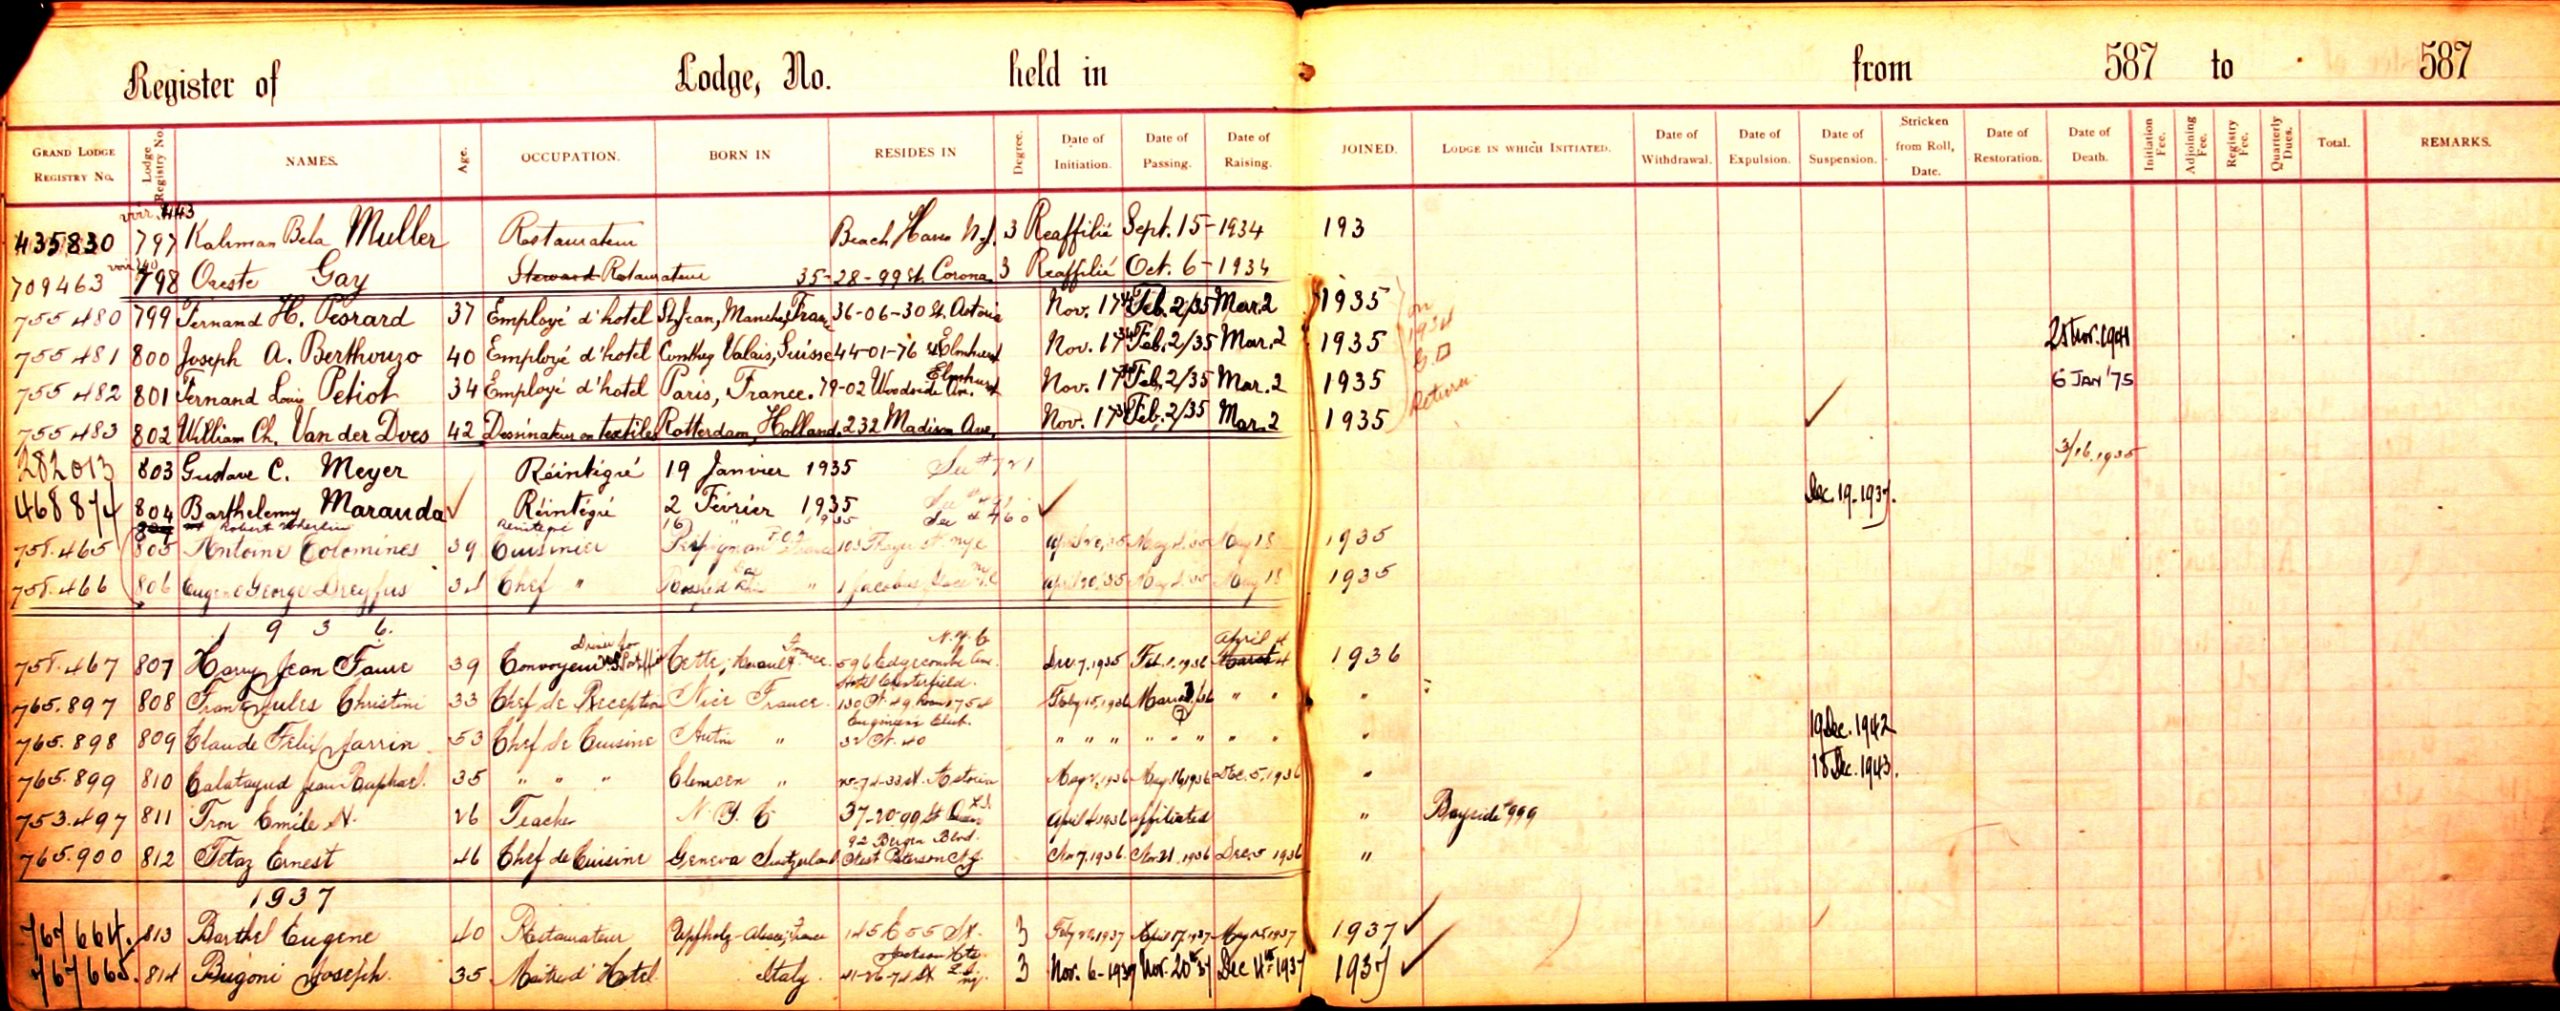 Register of Lodge, No. held in from 587 to 587
GRAND LODGE REGISTRY No. Lodge Registry No. NAMES. Age. OCCUPATION. BORN IN RESIDES IN Degree. Date of Initiation. Date of Passing. Date of Raising. JOINED. LODGE IN WHICH INITIATED. Date of Withdrawal. Date of Expulsion. Date of Suspension. Stricken from Roll, Date. Date of Restoration. Date of Death. Initiation Fee. Adjoining Fee. Registry Fee. Quarterly Dues. Total. REMARKS.
voir 443
435830 797 Kalman Bela Muller Restaurateur Beach Haven N.J. 3 Reaffilié Sept. 15-1934 193
709463 798 Oreste Gay Steward Restaurateur 35-28-99 St. Corona 3 Reaffilié Oct. 6-1934
755480 799 Fernand H. Pesrard 37 Employé d'hotel St Jean, Manche, France 36-06-30 St. Astoria Nov. 17 34 Feb. 2/35 Mar. 2 1935
755481 800 Joseph A. Berthouzo 40 Employé d'hotel Conthey Valais, Suisse 44-01-76 St Elmhurst Nov. 17 34 Feb. 2/35 Mar. 2 1935
755482 801 Fernand Louis Petiot 34 Employé d'hotel Paris, France. 79-02 Woodside Av. Elmhurst Nov. 17 34 Feb. 2/35 Mar. 2 1935 6 JAN '75
755483 802 William Ch. Van der Does 42 Dessinateur en textiles Rotterdam, Holland. 232 Madison Ave. Nov. 17 34 Feb. 2/35 Mar. 2 1935
on 1934 G. Return
282013 803 Gustave C. Meyer Réintégré 19 Janvier 1935 See # 721 3/16.1935
468874 804 Barthelemy Marauda Réintégré 2 Février 1935 Dec. 19-1937.
Robert Réintégré 16 " 1935 See # 460
758.465 805 Antoine Colomines 39 Cuisinier Perpignan France 103 Thayer St. nyc April 20, 35 May 18 1935
758.466 806 Eugene George Dreyfus Chef " " April 20, 35 May 18 1935
1936.
758.467 807 Harry Jean Faure 39 Convoyeur Cette, Herault, France. 596 Edgecombe Ave. N.Y.C Dec. 7, 1935 Feb. 1, 1936 March April 4 1936
765.897 808 Frank Jules Christini 33 Chef de Reception Nice France. Hotel Chesterfield. 130 W. 49 Feby 15, 1936 " " "
765.898 809 Claude Felix Jarrin 53 Chef de Cuisine " Engineers Club. 32 W. 40 " " " " " " " " " 19 Dec. 1942
765.899 810 Calatayud Jean Raphael. 35 " " " " Astoria May 2, 1936 May 16, 1936 Dec. 5, 1936 " 18 Dec. 1943.
753.497 811 Tron Emile N. 26 Teacher N.Y.C 37-20-99 St April 4 1936 affiliated " Bayside #999
765.900 812 Tetaz Ernest 46 Chef de Cuisine Geneva Switzerland 92 Bergen Blvd. West Paterson N.J. Nov. 7, 1936 Nov. 21, 1936 Dec. 5 1936 "
1937
767664. 813 Barthel Eugene 40 Restaurateur Alsace, France 145 E 55 St. 3 April 17, 1937 May 15, 1937 1937
767665. 814 Bugoni Joseph 35 Maitre d'Hotel Italy 41-26-74 St Jackson Hts. L.I. ny. 3 Nov. 6-1937 Nov. 20th 37 Dec 4th 1937 1937